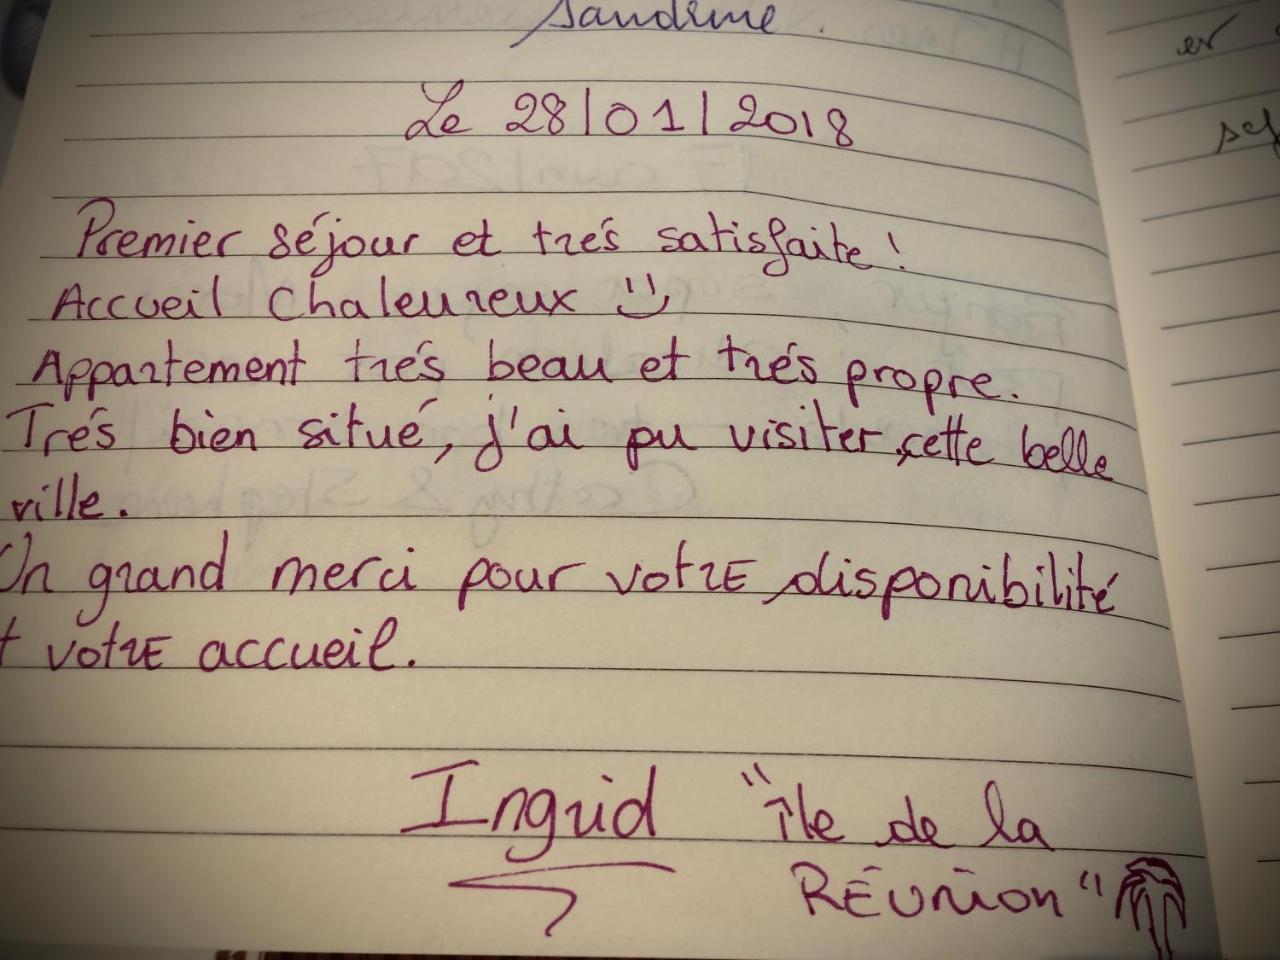 Sandrine.
Le 28/01/2018
Premier séjour et trés satisfaite !
Accueil Chaleureux
Appartement trés beau et trés propre.
Trés bien situé, j'ai pu visiter cette belle
ville.
Un grand merci pour votre disponibilité
t votre accueil.
Ingrid "île de la
RÉUnion"
er